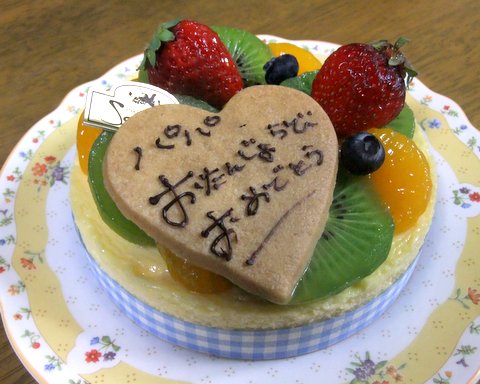 パパ
おたんじょうび
おめでとう